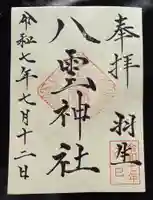 奉拝
羽生
八雲神社
令和七年七月十二日